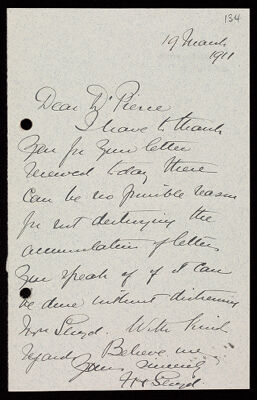 134
19 March
1911
Dear Mr Pierce
I have to thank
you for your letter
received today there
can be no possible reason
for not destroying the
accumulation of letters
you speak of if it can
be done without distressing
Lloyd. With kind
regards Believe me
Yours sincerely
Lloyd